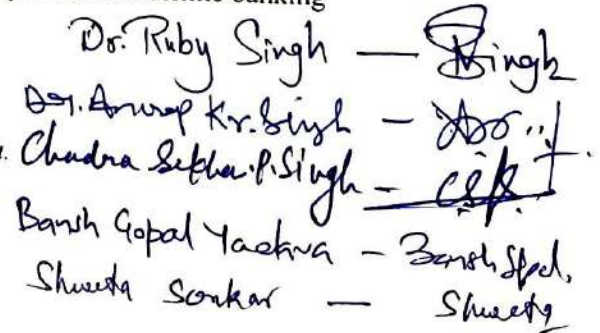 banking
Dr. Ruby Singh — Singh
Dr. Anurag Kr. Singh —
Chandra Sekhar. P. Singh -
Bansh Gopal Yadava - Bansh Gopal,
Shweta Sonkar — Shweta